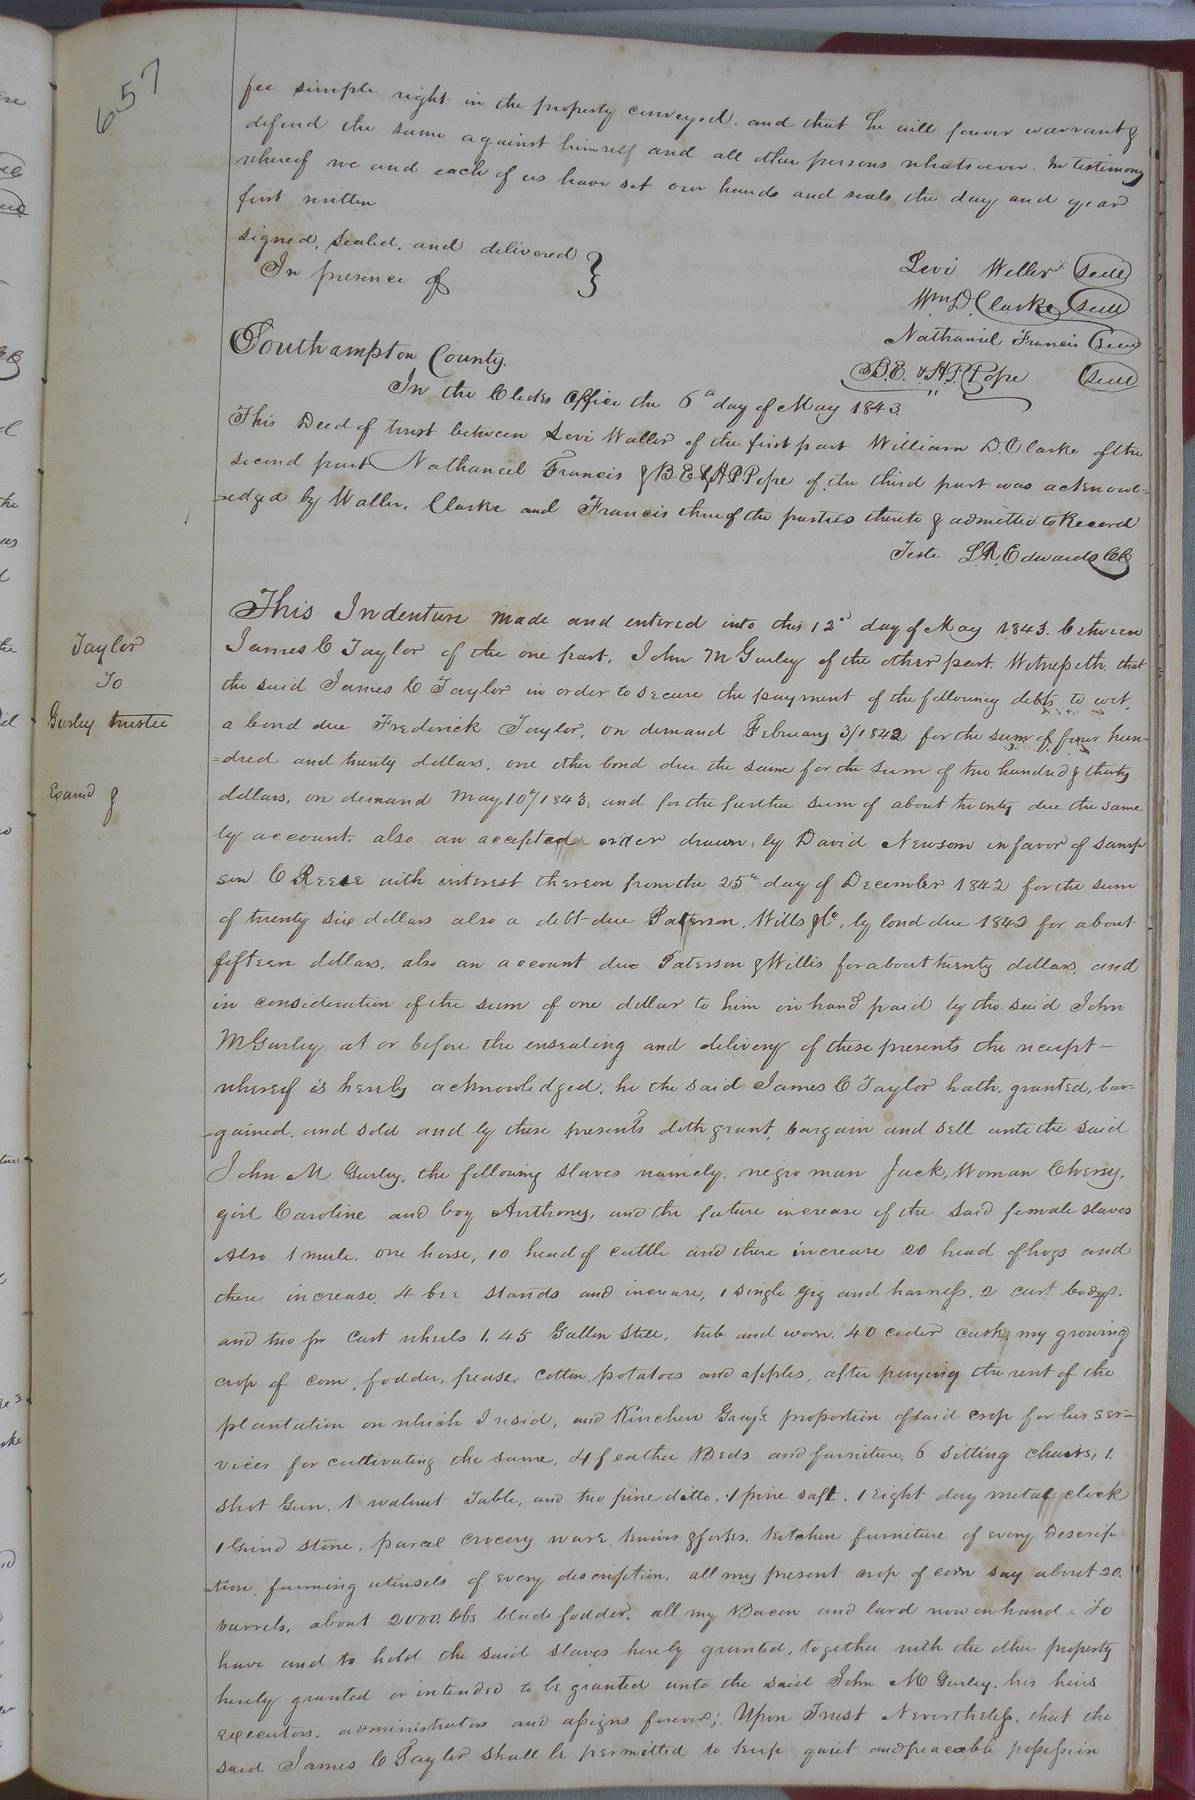 657
fee simple right in the property conveyed. and that he will forever warrant &
defend the same against himself and all other persons whatsoever. In testimony
whereof we and each of us have set our hands and seals the day and year
first written
signed, sealed, and delivered }
In presence of
Levi Waller (Seal)
Wm D. Clarke (Seal)
Nathaniel Francis (Seal)
B.E. & H.P. Pope (Seal)
Southampton County.
In the Clerks Office the 6th day of May 1843.
This Deed of trust between Levi Waller of the first part William D. Clarke of the
second part Nathaniel Francis & B E & H P Pope of the third part was acknowl=
=edged by Waller, Clarke and Francis three of the parties thereto & admitted to Record
Teste L. R. Edwards CC
Taylor
To
Gurley trustee
Examd &
This Indenture made and entered into this 12th day of May 1843. between
James C Taylor of the one part, John M Gurley of the other part. Witnesseth that
the said James C Taylor in order to secure the payment of the following debts to wit,
a bond due Frederick Taylor, on demand February 3/1842 for the sum of four hun=
=dred and twenty dollars, one other bond due the same for the sum of two hundred & thirty
dollars, on demand May 10th/1843, and for the further sum of about twenty due the same
by account. also an accepted order drawn, by David Newsom in favor of Samp
son C Reese with interest thereon from the 25th day of December 1842 for the sum
of twenty six dollars also a debt due Paterson, Wills & Co, by bond due 1842 for about
fifteen dollars, also an account due Paterson & Willis for about twenty dollars, and
in consideration of the sum of one dollar to him in hand paid by the said John
M Gurley at or before the ensealing and delivery of these presents the receipt—
whereof is hereby acknowledged, he the said James C Taylor hath, granted, bar=
=gained, and sold and by these presents doth grant, bargain and sell unto the said
John M Gurley, the following slaves namely, negro man Jack, Woman Cherry,
girl Caroline and boy Anthony, and the future increase of the said female slaves
Also 1 mule, one horse, 10 head of cattle and there increase 20 head of hogs and
there increase, 4 bee stands and increase, 1 single gig and harness, 2 cart bodys,
and two pr cart wheels 1, 45 Gallon Still, tub and worm, 40 cider casks, my growing
crop of corn, fodder, pease, cotton, potatoes and apples, after paying the rent of the
plantation on which I resid, and Kinchen Gray's proportion of said crop for his ser=
vices for cultivating the same, 4 feather Beds and furniture, 6 sitting chairs, 1
shot Gun, 1 walnut Table, and two pine ditto, 1 pine saft, 1 eight day metal clock
1 Grind stone, parcel crocery ware, knives & forks, kitchen furniture of every descrip
=tion, farming utinsels of every description, all my present crop of corn say about 20
barrels, about 2000 lbs blade fodder, all my Bacon and lard now on hand. To
have and to hold the said slaves hereby granted, together with the other property
hereby granted or intended to be granted unto the said John M Gurley, his heirs
executors, administrators and assigns forever; Upon Trust Nevertheless, that the
said James C Taylor shall be permitted to keep quiet and peaceable possession